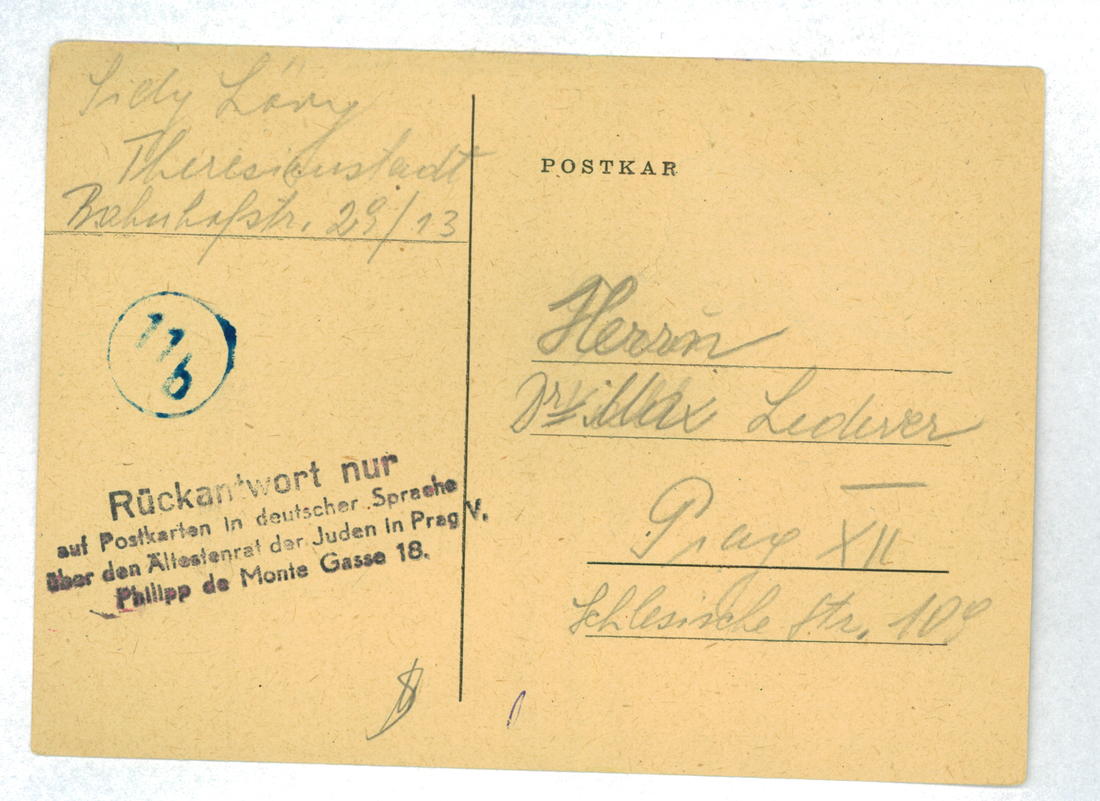 Sidy Löwy
Theresienstadt
Bahnhofstr. 29/13
11
b
Rückantwort nur
auf Postkarten in deutscher Sprache
über den Ältestenrat der Juden in Prag V.
Philipp de Monte Gasse 18.
POSTKAR
Herrn
Dr Max Lederer
Prag XII
Schlesische Str. 109